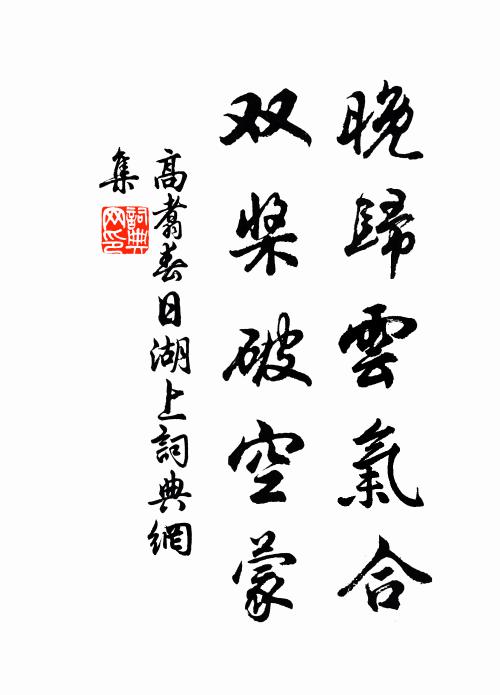 晚歸雲氣合
双槳破空蒙
高翥春日湖上詞典網
集
詞典
网印